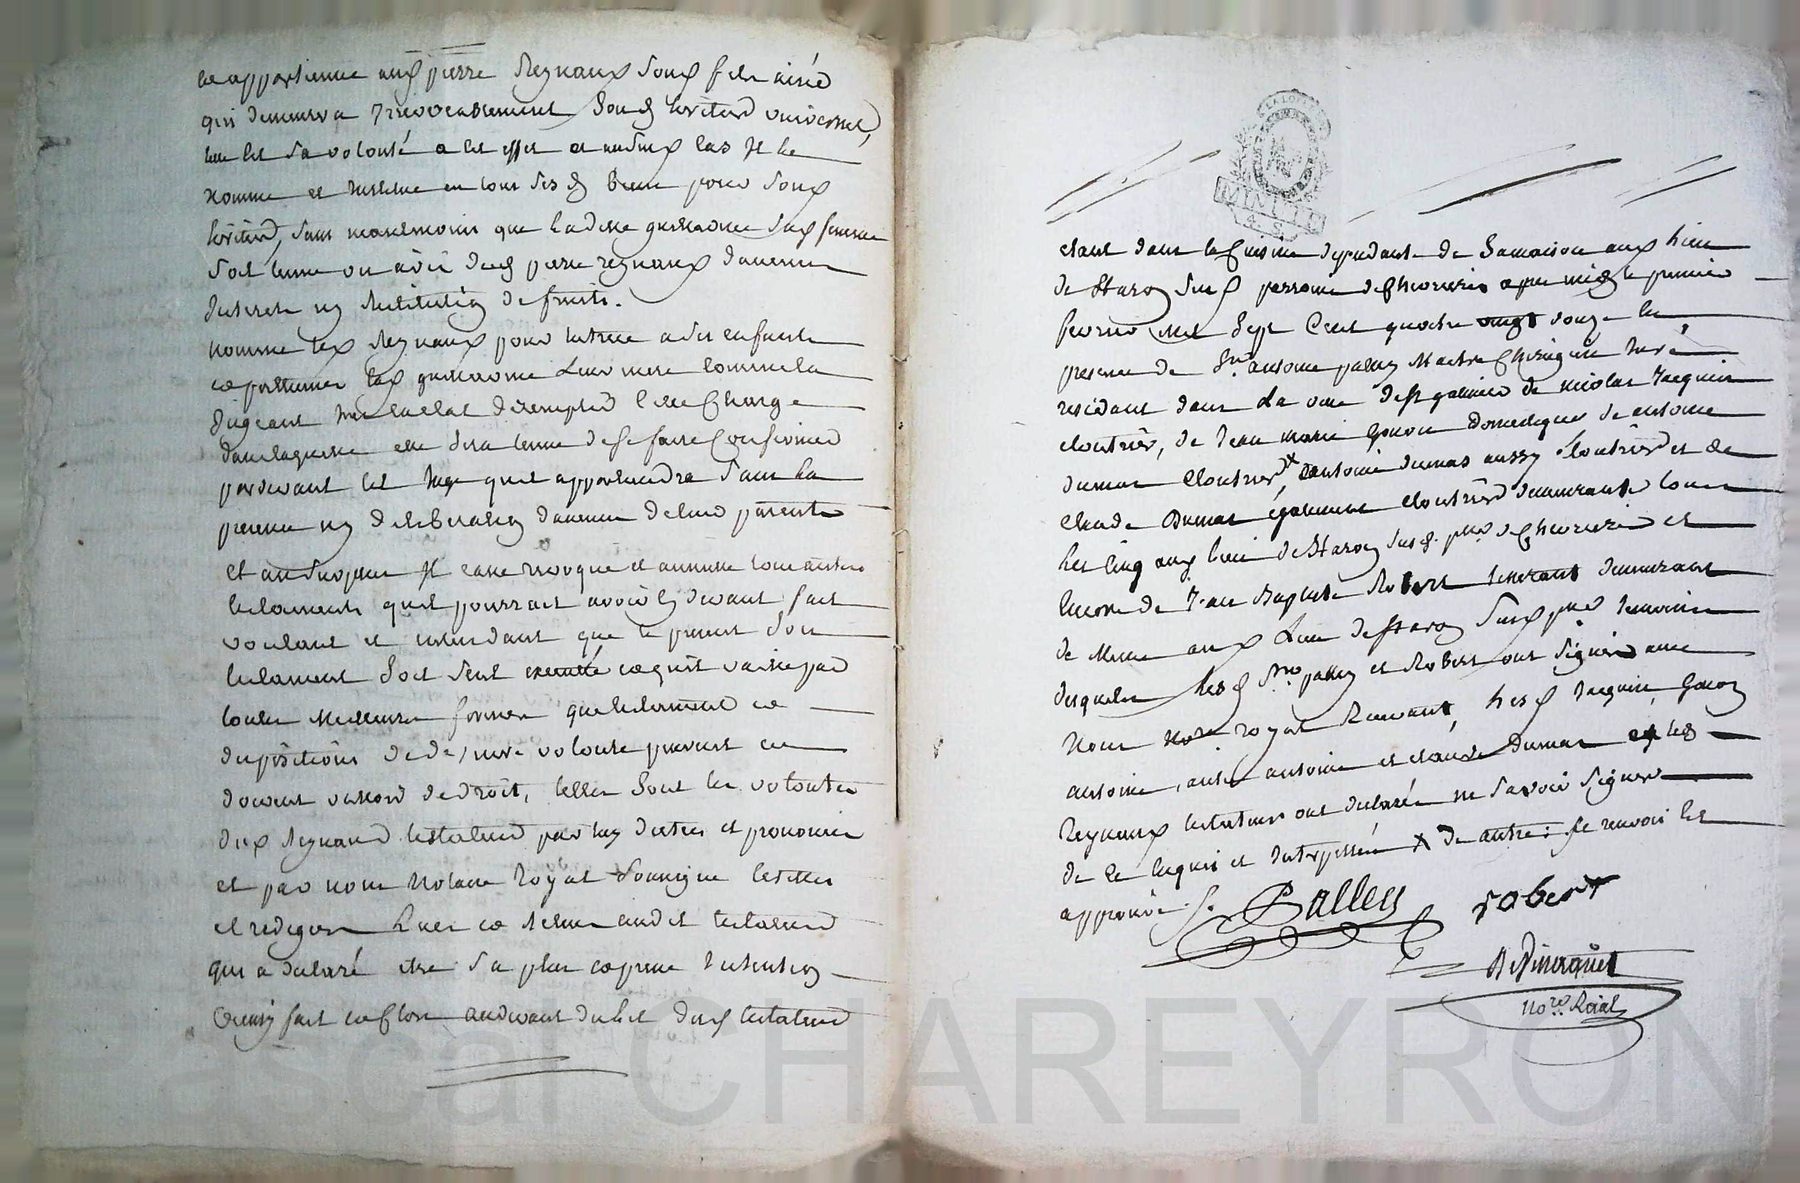 appartienne aud pierre Reynaux sond fils ainé
qui demeurera irrevocablement sond héritier universel,
sa volonté a cet effet et audit cas il le
nomme et institue en tous sesd biens pour sond
héritier, sans neanmoins que ladite guillaume sad femme
soit tenue vis avis dud pierre reynaux d'aucun
interets ny restitution de fruits.
nomme led Reynaux pour tutrice a ses enfants
lad guillaume leur mere comme la
diligeant charge
de laquelle elle sera tenue de se faire confirmer
pardevant tel juge quil appartiendra sans la
presence ny deliberation d'aucun de leurs parents
Et au surplus il casse revoque et annulle tous autres
testaments quil pourrait avoir cy devant fait
voulant et entendant que le present son
testament soit seul executé et quil vaille par
toutes meilleures formes que testament et
dispositions de derniere volonté peuvent et
doivent valloir de droit, telles sont les volontés
dud Reynaud testateur par luy dictées et prononcées
et par nous Notaire Royal soussigné
et redigées Lues et relues audit testateur
qui a declaré être sa plus expresse intention
Ainsy fait et clos audevant du lit dud testateur
étant dans la cuisine dependante de sa maison aux lieu
de Staron susd parroisse de Chevrieres apres midy le premier
fevrier mil sept cent quatre vingt douze en
presence de Sr. antoine palley Maitre Chirurgien juré
residant dans la ville de St galmier de nicolas Jacquin
cloutrier, de jean marie Gonon domestique de antoine
dumas cloutrier, + antoine dumas aussy cloutrier et de
claude Dumas egalement cloutrier demeurants tous
les cinq aux lieu de Staron susd. psse de Chevrieres et
encore de Jean Baptiste Robert tisserant demeurant
de meme aux Lieu de Staron susd psse temoins
desquels lesd Srs palley et Robert ont signé avec
Nous Nore royal Recevant, lesd jacquin, Gonon
antoine, autre antoine et claude dumas et led
Reynaux testateur ont declaré ne savoir signer
de ce enquis et interpellés + de autre: le renvoi est
approuvé ./.
Palley robert
Nore. Roial
Pascal CHAREYRON